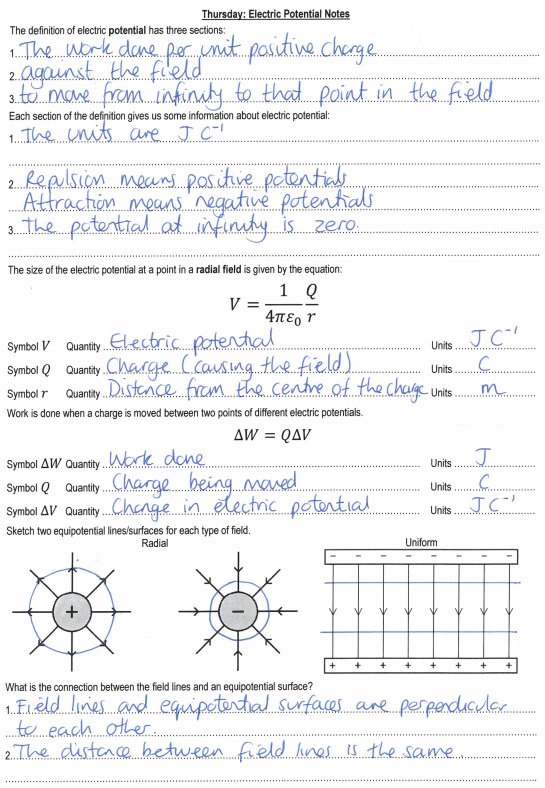 Thursday: Electric Potential Notes
The definition of electric potential has three sections:
1. The work done per unit positive charge
2. against the field
3. to move from infinity to that point in the field
Each section of the definition gives us some information about electric potential:
1. The units are J C⁻¹
2. Repulsion means positive potentials
Attraction means negative potentials
3. The potential at infinity is zero.
The size of the electric potential at a point in a radial field is given by the equation:
V = 1/4πε₀ Q/r
Symbol V Quantity Electric potential Units J C⁻¹
Symbol Q Quantity Charge (causing the field) Units C
Symbol r Quantity Distance from the centre of the charge Units m
Work is done when a charge is moved between two points of different electric potentials.
ΔW = QΔV
Symbol ΔW Quantity Work done Units J
Symbol Q Quantity Charge being moved Units C
Symbol ΔV Quantity Change in electric potential Units J C⁻¹
Sketch two equipotential lines/surfaces for each type of field.
Radial Uniform
− − − − − − − −
+ −
+ + + + + + + +
What is the connection between the field lines and an equipotential surface?
1. Field lines and equipotential surfaces are perpendicular
to each other.
2. The distance between field lines is the same.